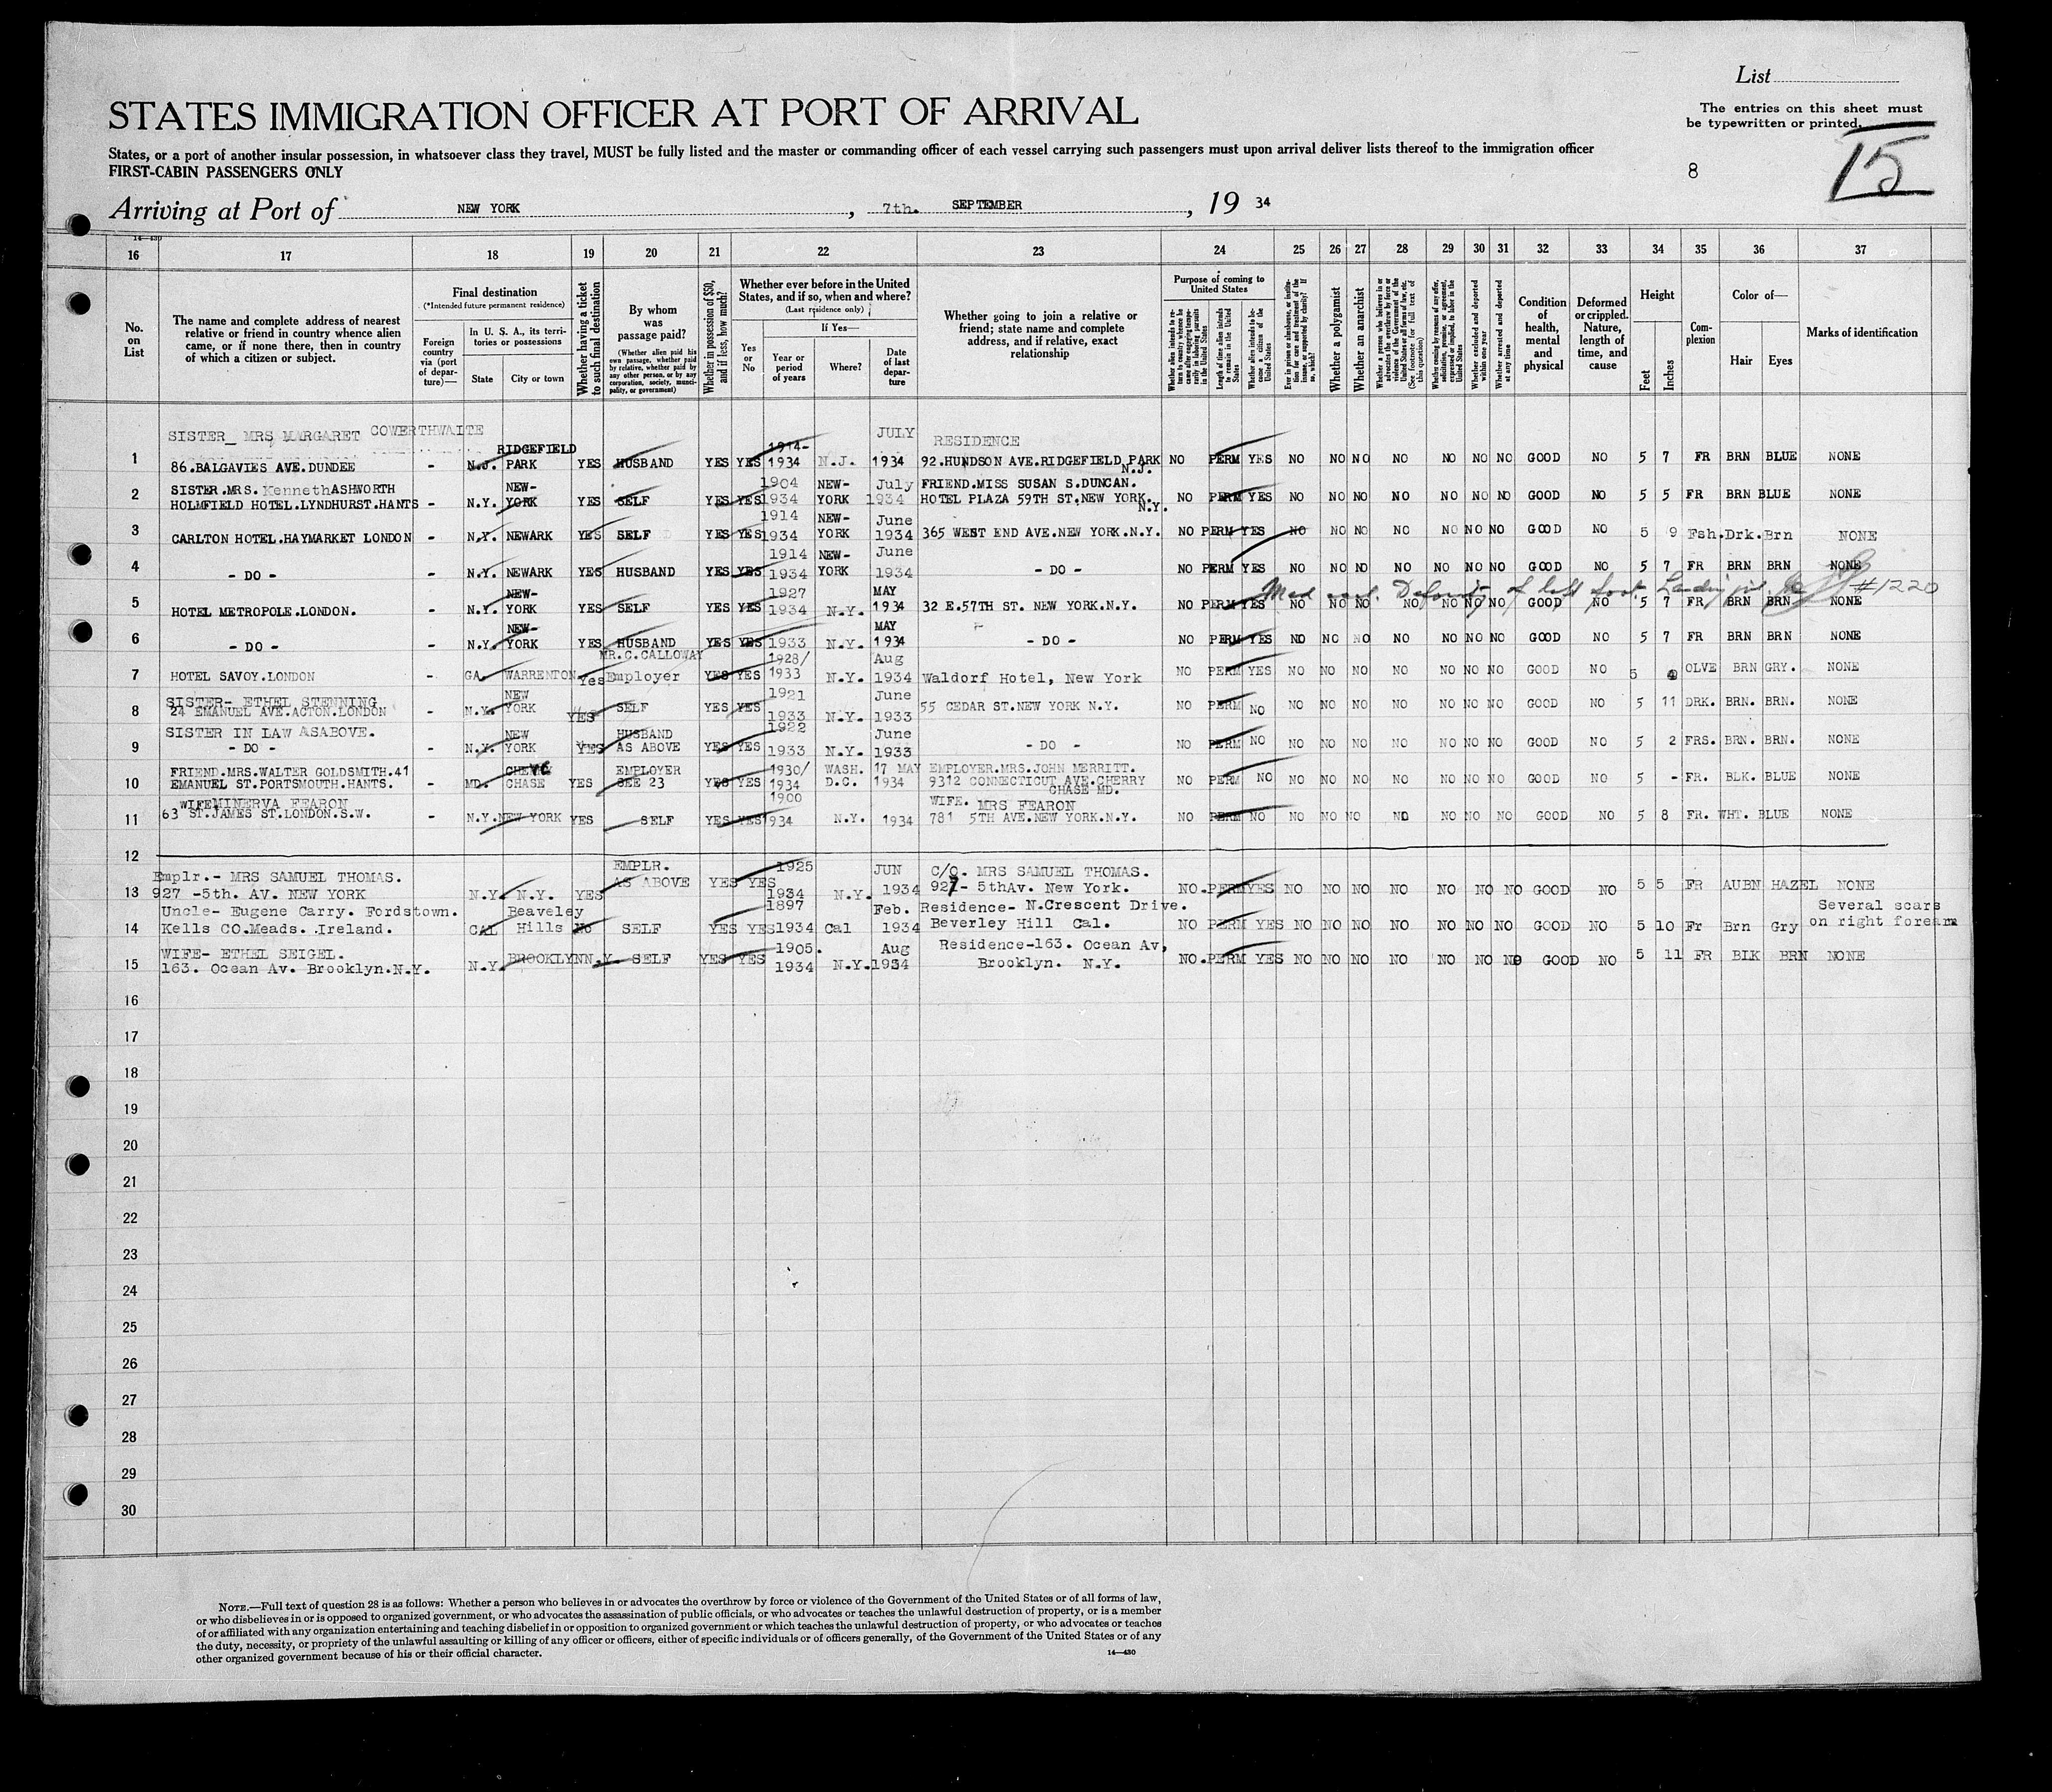 List
STATES IMMIGRATION OFFICER AT PORT OF ARRIVAL
The entries on this sheet must
be typewritten or printed.
States, or a port of another insular possession, in whatsoever class they travel, MUST be fully listed and the master or commanding officer of each vessel carrying such passengers must upon arrival deliver lists thereof to the immigration officer
FIRST-CABIN PASSENGERS ONLY
8
15
Arriving at Port of NEW YORK, 7th. SEPTEMBER, 19 34
14—430
16 17 18 19 20 21 22 23 24 25 26 27 28 29 30 31 32 33 34 35 36 37
No. on List
The name and complete address of nearest relative or friend in country whence alien came, or if none there, then in country of which a citizen or subject.
Final destination
(*Intended future permanent residence)
Foreign country via (port of departure)—
In U. S. A., its territories or possessions
State
City or town
Whether having a ticket to such final destination
By whom was passage paid?
(Whether alien paid his own passage, whether paid by relative, whether paid by any other person, or by any corporation, society, municipality, or government)
Whether in possession of $50, and if less, how much?
Whether ever before in the United States, and if so, when and where?
(Last residence only)
Yes or No
If Yes—
Year or period of years
Where?
Date of last departure
Whether going to join a relative or friend; state name and complete address, and if relative, exact relationship
Purpose of coming to United States
Whether alien intends to return to country whence he came after engaging temporarily in laboring pursuits in the United States
Length of time alien intends to remain in the United States
Whether alien intends to become a citizen of the United States
Ever in prison or almshouse, or institution for care and treatment of the insane, or supported by charity? If so, which?
Whether a polygamist
Whether an anarchist
Whether a person who believes in or advocates the overthrow by force or violence of the Government of the United States or all forms of law, etc. (See footnote for full text of this question)
Whether coming by reasons of any offer, solicitation, promise, or agreement, expressed or implied, to labor in the United States
Whether excluded and deported within one year
Whether arrested and deported at any time
Condition of health, mental and physical
Deformed or crippled. Nature, length of time, and cause
Height
Feet
Inches
Complexion
Color of—
Hair
Eyes
Marks of identification
SISTER_ MRS MARGARET COWERTHWAITE RIDGEFIELD 1914- JULY RESIDENCE
1 86.BALGAVIES AVE.DUNDEE - N.J. PARK YES HUSBAND YES YES 1934 N.J. 1934 92.HUNDSON AVE.RIDGEFIELD PARK N.J. NO PERM YES NO NO NO NO NO NO NO GOOD NO 5 7 FR BRN BLUE NONE
SISTER.MRS. Kenneth ASHWORTH NEW- 1904 NEW- July FRIEND.MISS SUSAN S.DUNCAN.
2 HOLMFIELD HOTEL.LYNDHURST.HANTS - N.Y. YORK YES SELF YES YES 1934 YORK 1934 HOTEL PLAZA 59TH ST.NEW YORK. N.Y. NO PERM YES NO NO NO NO NO NO NO GOOD NO 5 5 FR BRN BLUE NONE
1914 NEW- June
3 CARLTON HOTEL.HAYMARKET LONDON - N.Y. NEWARK YES SELF YES YES 1934 YORK 1934 365 WEST END AVE.NEW YORK.N.Y. NO PERM YES NO NO NO NO NO NO NO GOOD NO 5 9 Fsh. Drk. Brn NONE
1914 NEW- June
4 - DO - - N.Y. NEWARK YES HUSBAND YES YES 1934 YORK 1934 - DO - NO PERM YES NO NO NO NO NO NO NO GOOD NO 5 7 FR BRN BRN NONE
Deformity of left foot. #1220
NEW- 1927 MAY
5 HOTEL METROPOLE.LONDON. - N.Y. YORK YES SELF YES YES 1934 N.Y. 1934 32 E.57TH ST. NEW YORK.N.Y. NO PERM YES NO NO NO NO NO NO NO GOOD NO 5 7 FR BRN BRN NONE
NEW- MAY
6 - DO - - N.Y. YORK YES HUSBAND YES YES 1933 N.Y. 1934 - DO - NO PERM YES NO NO NO NO NO NO NO GOOD NO 5 7 FR BRN BRN NONE
MR.C.CALLOWAY 1928/ Aug
7 HOTEL SAVOY.LONDON - GA. WARRENTON Yes Employer YES YES 1933 N.Y. 1934 Waldorf Hotel, New York NO PERM YES NO NO NO NO NO NO NO GOOD NO 5 OLVE BRN GRY. NONE
SISTER- ETHEL STENNING NEW 1921 June
8 24 EMANUEL AVE.ACTON.LONDON - N.Y. YORK YES SELF YES YES 1933 N.Y. 1933 55 CEDAR ST.NEW YORK N.Y. NO PERM NO NO NO NO NO NO NO NO GOOD NO 5 11 DRK. BRN. BRN. NONE
SISTER IN LAW ASABOVE. NEW HUSBAND 1922 June
9 - DO - - N.Y. YORK YES AS ABOVE YES YES 1933 N.Y. 1933 - DO - NO PERM NO NO NO NO NO NO NO NO GOOD NO 5 2 FRS. BRN. BRN. NONE
FRIEND.MRS.WALTER GOLDSMITH.41 CHEVY EMPLOYER 1930/ WASH. 17 MAY EMPLOYER.MRS.JOHN MERRITT.
10 EMANUEL ST.PORTSMOUTH.HANTS. - MD. CHASE YES SEE 23 YES YES 1934 D.C. 1934 9312 CONNECTICUT AVE.CHERRY CHASE MD. NO PERM NO NO NO NO NO NO NO NO GOOD NO 5 - FR. BLK. BLUE NONE
WIFE MINERVA FEARON 1900 WIFE. MRS FEARON
11 63 ST.JAMES ST.LONDON.S.W. - N.Y. NEW YORK YES SELF YES YES 1934 N.Y. 1934 781 5TH AVE.NEW YORK.N.Y. NO PERM NO NO NO NO NO NO NO NO GOOD NO 5 8 FR. WHT. BLUE NONE
12
Emplr.- MRS SAMUEL THOMAS. EMPLR. 1925 JUN C/O. MRS SAMUEL THOMAS.
13 927 -5th. AV. NEW YORK N.Y. N.Y. YES AS ABOVE YES YES 1934 N.Y. 1934 927- 5thAv. New York. NO. PERM YES NO NO NO NO NO NO NO GOOD NO 5 5 FR AUBN HAZEL NONE
Uncle- Eugene Carry. Fordstown. Beaveley 1897 Feb. Residence- N.Crescent Drive. Several scars
14 Kells CO.Meads. Ireland. CAL Hills No SELF YES YES 1934 Cal 1934 Beverley Hill Cal. NO PERM YES NO NO NO NO NO NO NO GOOD NO 5 10 Fr Brn Gry on right forearm
WIFE- ETHEL SEIGEL. 1905. Aug Residence-163. Ocean Av,
15 163. Ocean Av. Brooklyn.N.Y. N.Y. BROOKLYN N.Y. SELF YES YES 1934 N.Y. 1934 Brooklyn. N.Y. NO. PERM YES NO NO NO NO NO NO NO GOOD NO 5 11 FR BLK BRN NONE
16
17
18
19
20
21
22
23
24
25
26
27
28
29
30
NOTE.—Full text of question 28 is as follows: Whether a person who believes in or advocates the overthrow by force or violence of the Government of the United States or of all forms of law,
or who disbelieves in or is opposed to organized government, or who advocates the assassination of public officials, or who advocates or teaches the unlawful destruction of property, or is a member
of or affiliated with any organization entertaining and teaching disbelief in or opposition to organized government or which teaches the unlawful destruction of property, or who advocates or teaches
the duty, necessity, or propriety of the unlawful assaulting or killing of any officer or officers, either of specific individuals or of officers generally, of the Government of the United States or of any
other organized government because of his or their official character.
14—430